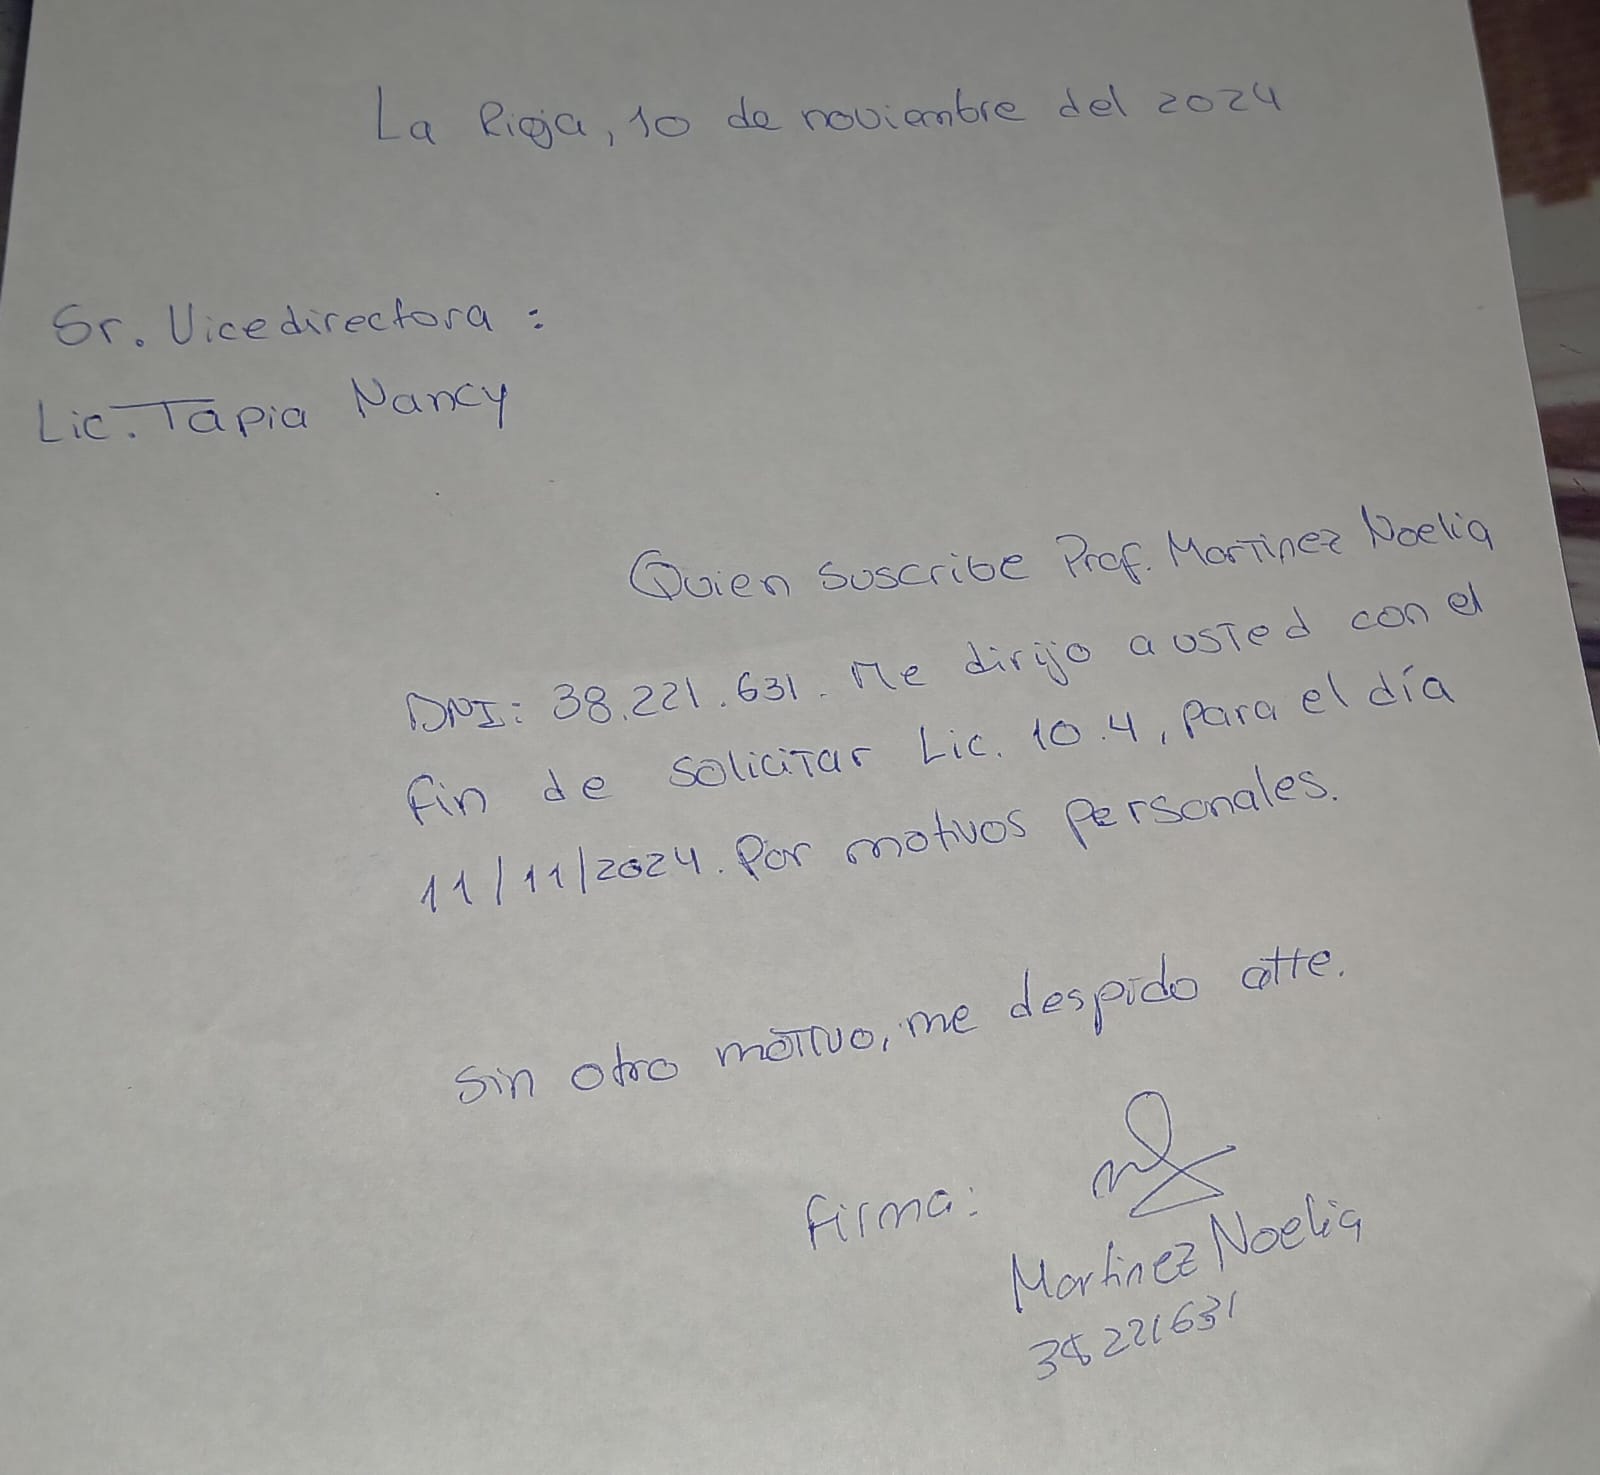 La Rioja, 10 de noviembre del 2024
Sr. Vicedirectora :
Lic. Tapia Nancy
Quien suscribe Prof. Martinez Noelia
DNI: 38.221.631. Me dirijo a usted con el
fin de solicitar Lic. 10.4, para el día
11/11/2024. Por motivos personales.
Sin otro motivo, me despido atte.
Firma:
Martinez Noelia
38221631